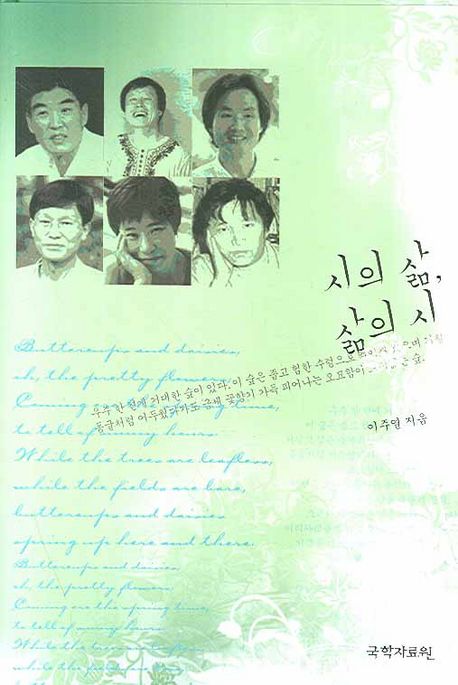 시의 삶,
삶의 시
우주 한 켠에 거대한 숲이 있다. 이 숲은 좁고 험한 수렁으로
동굴처럼 어두웠다가도 금세 꽃향기 가득 피어나는 오묘함이 숲.
이주열 지음
Buttercups and daisies,
oh, the pretty flowers,
Coming time,
to tell of sunny hours.
While the trees are leafless,
while the fields are bare,
buttercups and daisies
spring up here and there.
Buttercups and daisies,
oh, the pretty flowers,
Coming ere the spring time,
to tell of sunny hours.
While the trees are leafless,
while the fields are bare,
국학자료원